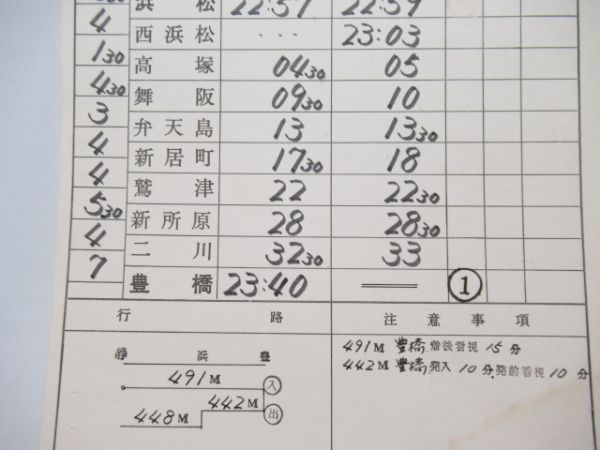 浜 松 22:57 22:59
4
西浜松 ... 23:03
1 30
高 塚 04 30 05
4 30
舞 阪 09 30 10
3
弁天島 13 13 30
4
新居町 17 30 18
4
鷲 津 22 22 30
5 30
新所原 28 28 30
4
二 川 32 30 33
7
豊 橋 23:40 ══ ①
行 路 注 意 事 項
静 浜 豊
491M 入
442M 出
448M
491M 豊橋 着後看視 15分
442M 豊橋発入 10分発前看視10分